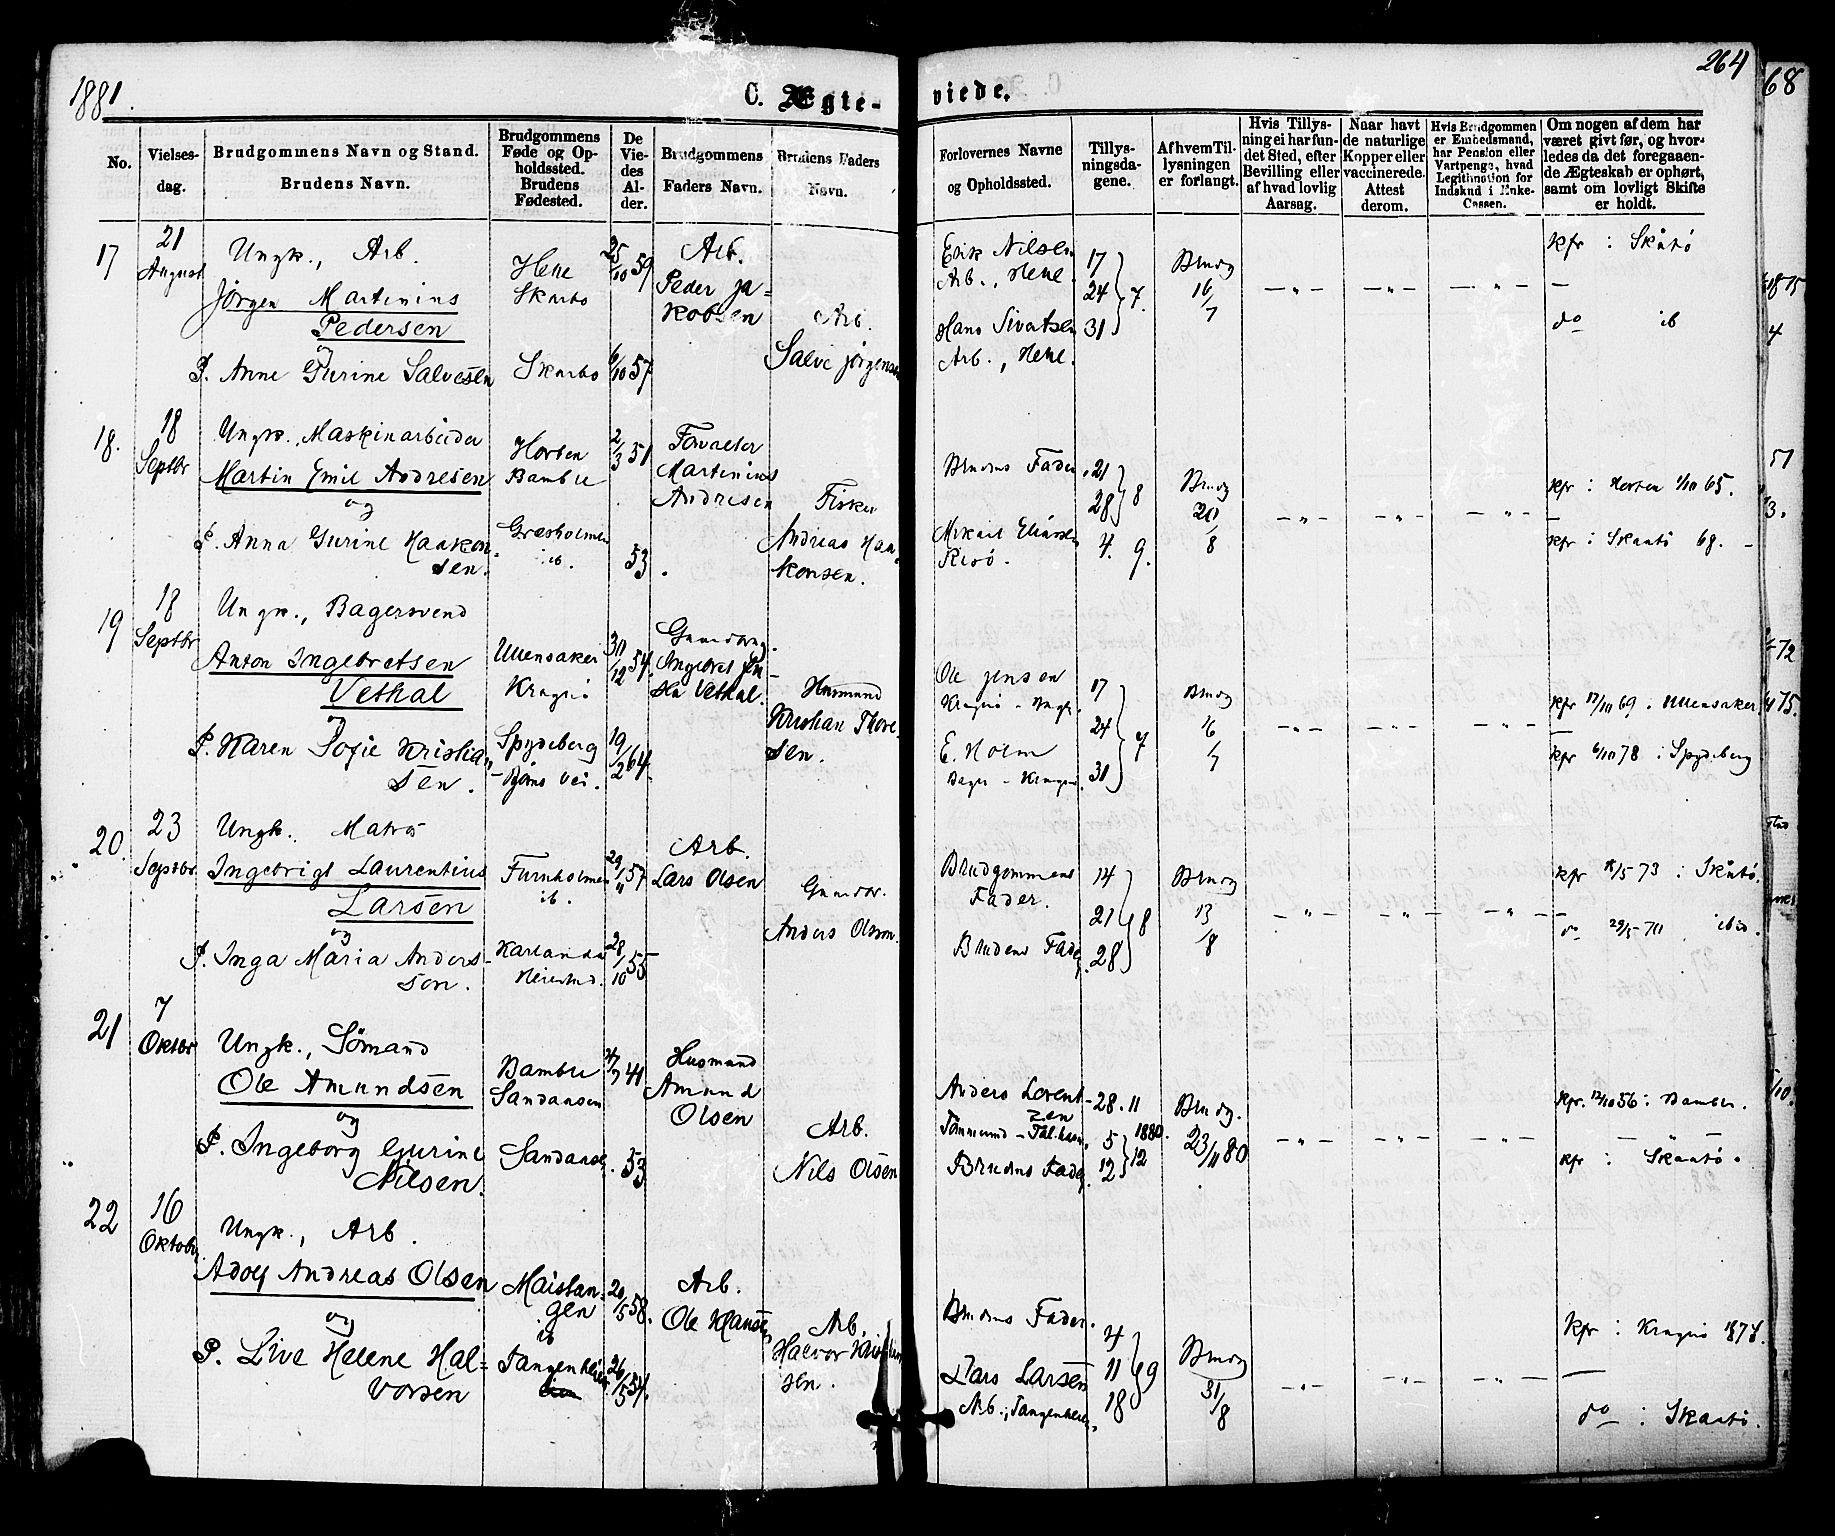 1881.
C. Ægte-
viede.
264
68
No.
Vielses-
dag.
Brudgommens Navn og Stand.
Brudens Navn.
Brudgommens
Føde og Op-
holdssted.
Brudens
Fødested.
De
Vie-
des
Al-
der.
Brudgommens
Faders Navn.
Brudens Faders
Navn.
Forlovernes Navne
og Opholdssted.
Tillys-
ningsda-
gene.
Af hvem Til-
lysningen
er forlangt.
Hvis Tillys-
ning ei har fun-
det Sted, efter
Bevilling eller
af hvad lovlig
Aarsag.
Naar havt
de naturlige
Kopper eller
vaccinerede.
Attest
derom.
Hvis Brudgommen
er Embedsmand,
har Pension eller
Vartpenge, hvad
Legitimation for
Indskud i Enke-
Cassen.
Om nogen af dem har
været givt før, og hvor-
ledes da det foregaaen-
de Ægteskab er ophørt,
samt om lovligt Skifte
er holdt.
17
21
August
Ungk., Arb.
Jörgen Martinius
Pedersen
og
P. Anne Gurine Salvesen
Helle
Skarbo
Skarbo
25/10 59
6/10 57
Arb.
Peder Ja-
kobsen
Arb.
Salve Jörgensen
Erik Nilsen
Arb., Helle.
Hans Sivertsen
Arb., Helle.
17
24 7.
31
Brudg
16/7
kfr : Skåtö
do ib
18.
18
Septbr
Ungk., Maskinarbeider
Martin Emil Andresen
og
P. Anna Gurine Haakon-
sen.
Horten
Bamble
Græsholmen
ib.
2/3 51
53
Forvalter
Martinius
Andresen
Fisker
Andreas Haa-
konsen.
Brudens Fader
Mikael Eliassen
Risö.
21
28 8
4. 9.
Brudg
20/8
kfr : Horten 1/10 65.
kfr : Skaatö 68.
19
18
Septbr
Ungk., Bagersvend
Anton Ingebretsen
Vethal
og
P. Karen Sofie Kristian
sen.
Ullensaker
Kragerö
Spydeberg
30/12 54.
19/2 64.
Gaardbrug.
Ingebret Jen-
sen Vethal.
Husmand
Kristian Thore-
sen.
Ole Jensen
Kragerö
E. Holm
Bager - Kragerö
17
24 7
31
Brudg
16/7
kfr 17/10 69 : Ullensaker
kfr 6/10 78 : Spydeberg
20.
23
Septbr
Ungk. Matros
Ingebrigt Laurentius
Larsen
og
P. Inga Maria Anders-
son.
Furuholmen
ib.
29/11 57
28/10 55
Arb.
Lars Olsen
Gaardbr.
Anders Olsson.
Brudgommens
Fader.
Brudens Fader
14
21 8
28
Brudg
13/8
kfr 18/5 73 : Skåtö.
do 29/5 70 ibid.
21
7
Oktbr
Ungk., Sömand
Ole Amundsen
og
P. Ingeborg Gurine
Nilsen.
Bamble
Sandaasen
Sandaasen
41
53
Husmand
Amund
Olsen
Arb.
Nils Olsen
Anders Lorent-
zen
Brudens Fader
28. 11
5 1880.
12 12
Brudg.
23/11 80
kfr. 12/10 56 : Bamble.
kfr : Skaatö.
22
16
Oktober
Ungk., Arb.
Adolf Andreas Olsen
og
P. Live Helene Hal-
vorsen
Maistan-
gen
ib
Tangenheien
20/5 58.
26/5 54.
Arb.
Ole Hansen
Arb.
Halvor Kristian
sen.
Brudens Fader.
Lars Larsen
Arb., Tangenheien
4
11 9
18
Brudg
31/8
kfr : Kragerö 1874.
do : Skaatö.